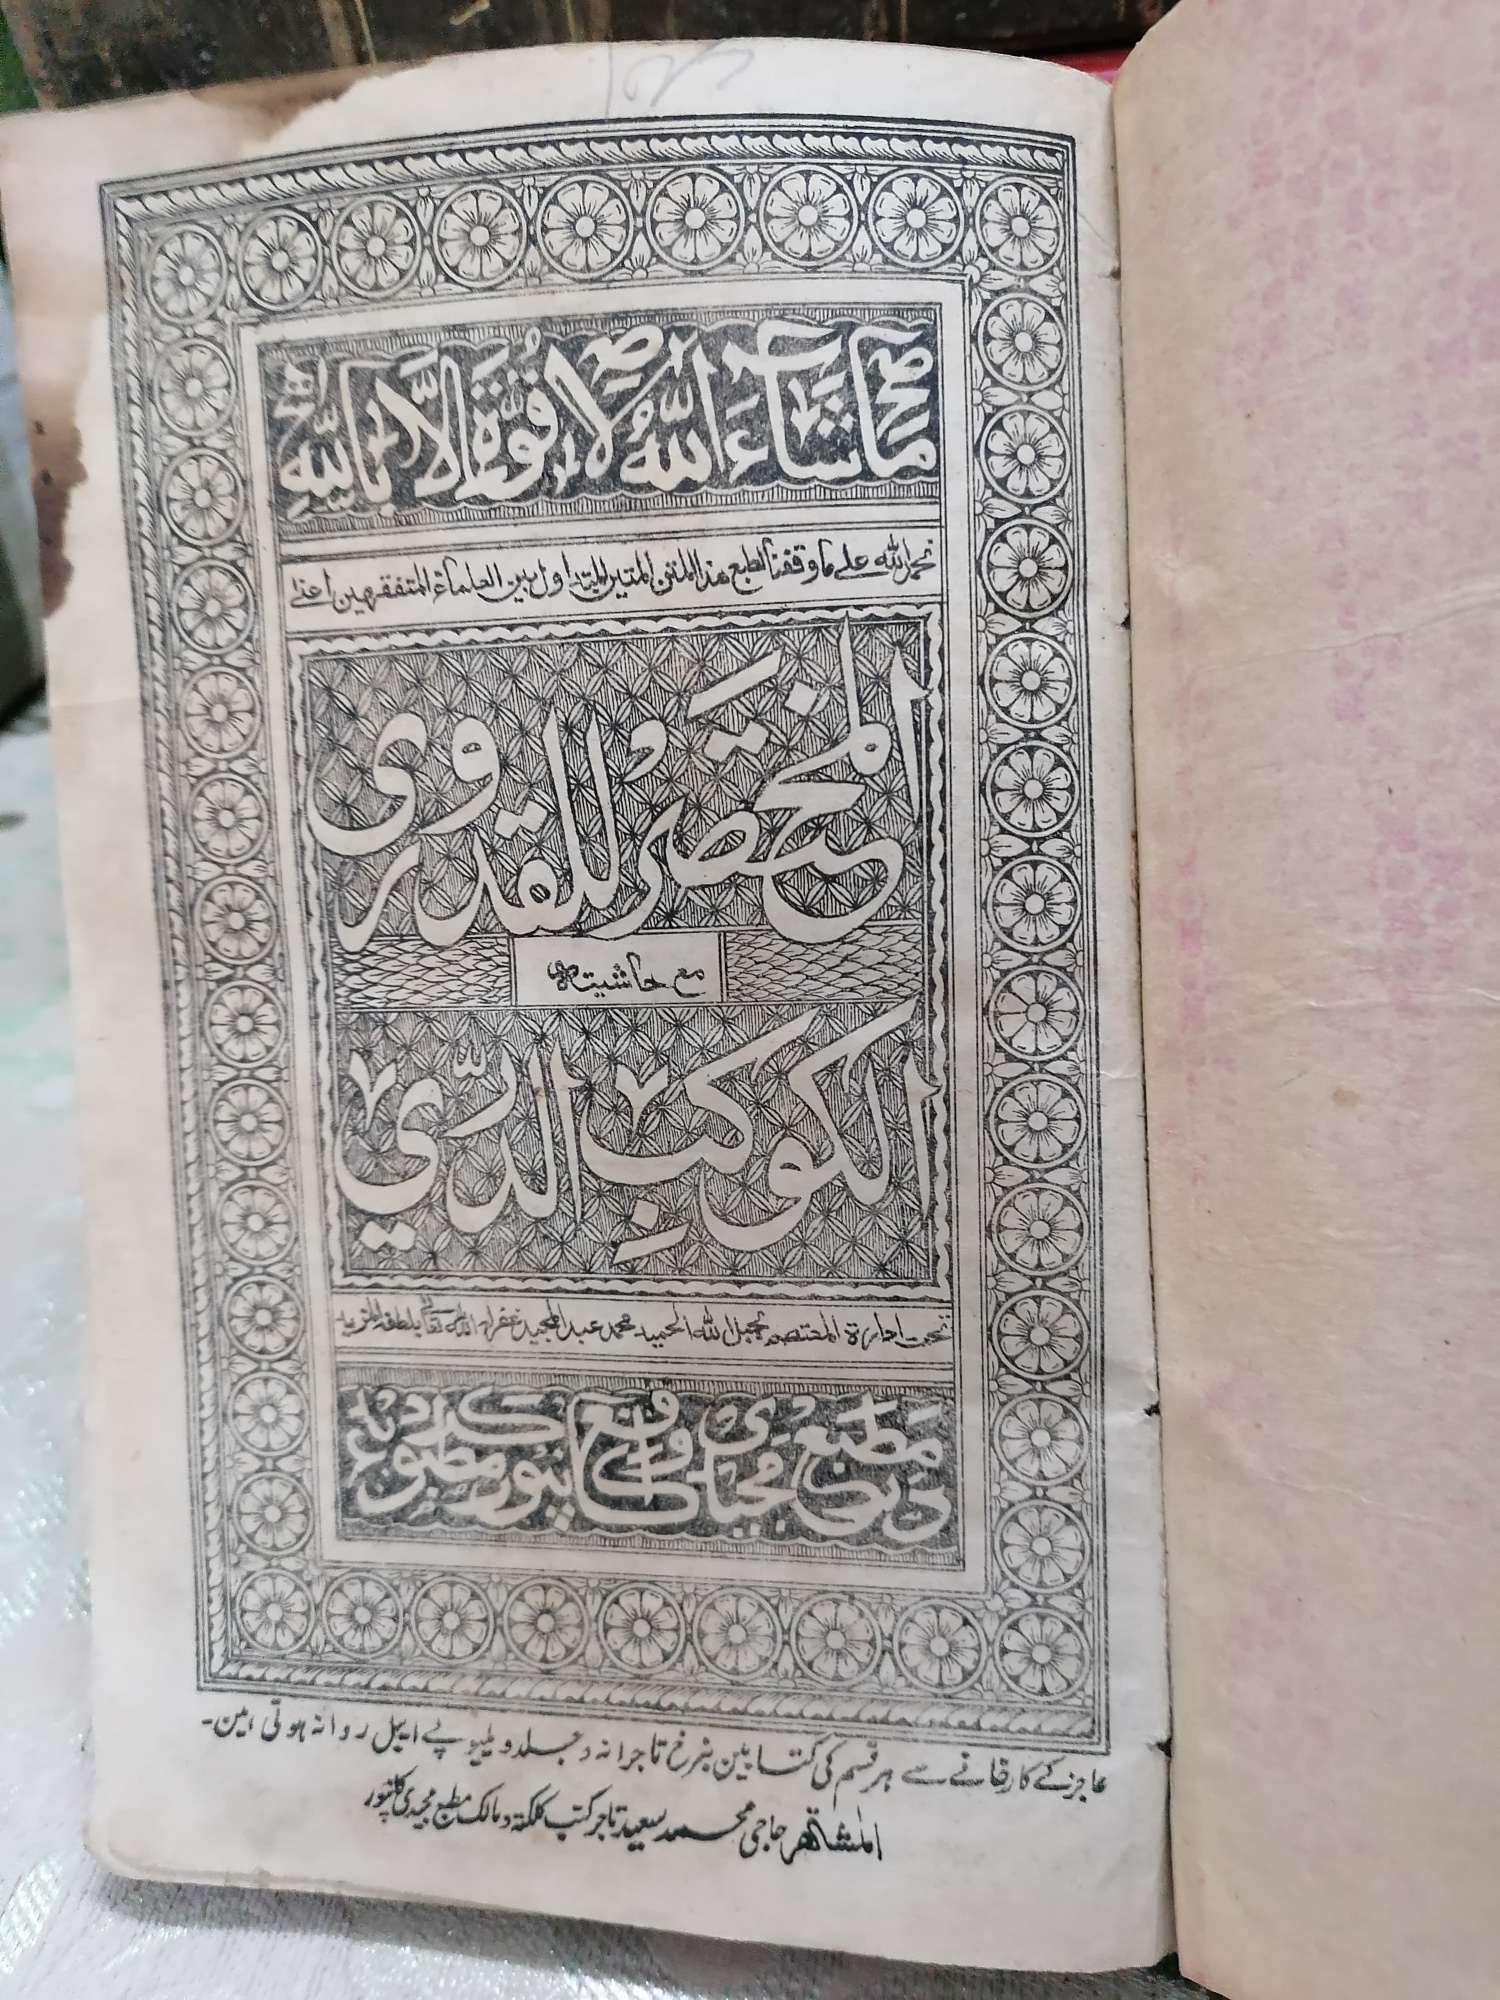 ما شاء الله لا قوة الا بالله
نحمد الله على ما وقفنا لطبع هذا المتن المتين المتداول بين العلماء المتفقهين اعنى
المختصر للقدوري
مع حاشيته
الكوكب الدري
تحت ادارة المعتصم بحبل الله الحميد محمد عبد المجيد غفر له الله تعالى بلطفه المزيد
در مطبع مجیدی واقع کانپور مطبوع گردید
عاجز کے کارخانے سے ہر قسم کی کتابین بنرخ تاجرانہ و جلد ویلیو پے ایبل روانہ ہوتی ہین۔
المشتہر حاجی محمد سعید تاجر کتب کلکتہ و مالک مطبع مجیدی کانپور